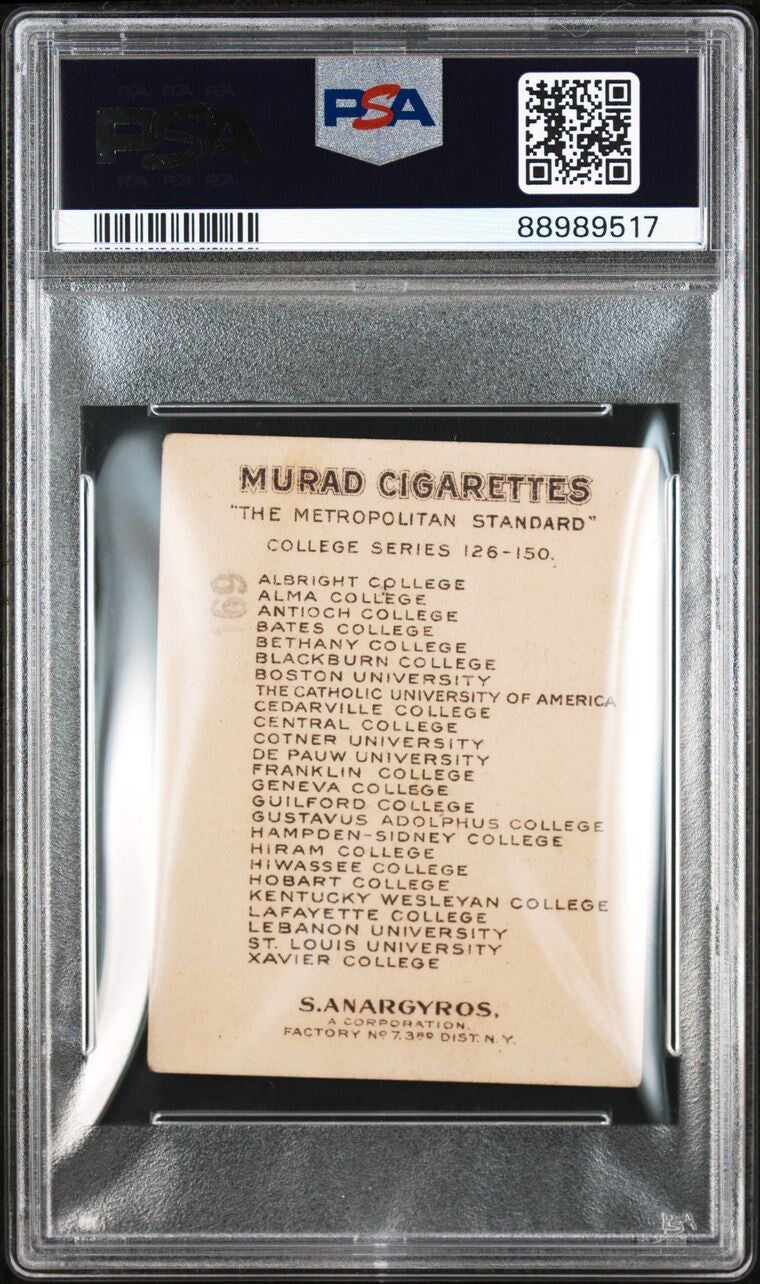 PSA
PSA
88989517
MURAD CIGARETTES
"THE METROPOLITAN STANDARD"
COLLEGE SERIES 126-150.
169
ALBRIGHT COLLEGE
ALMA COLLEGE
ANTIOCH COLLEGE
BATES COLLEGE
BETHANY COLLEGE
BLACKBURN COLLEGE
BOSTON UNIVERSITY
THE CATHOLIC UNIVERSITY OF AMERICA
CEDARVILLE COLLEGE
CENTRAL COLLEGE
COTNER UNIVERSITY
DE PAUW UNIVERSITY
FRANKLIN COLLEGE
GENEVA COLLEGE
GUILFORD COLLEGE
GUSTAVUS ADOLPHUS COLLEGE
HAMPDEN-SIDNEY COLLEGE
HIRAM COLLEGE
HIWASSEE COLLEGE
HOBART COLLEGE
KENTUCKY WESLEYAN COLLEGE
LAFAYETTE COLLEGE
LEBANON UNIVERSITY
ST. LOUIS UNIVERSITY
XAVIER COLLEGE
S. ANARGYROS,
A CORPORATION.
FACTORY Nº 7. 3RD DIST. N. Y.
PSA